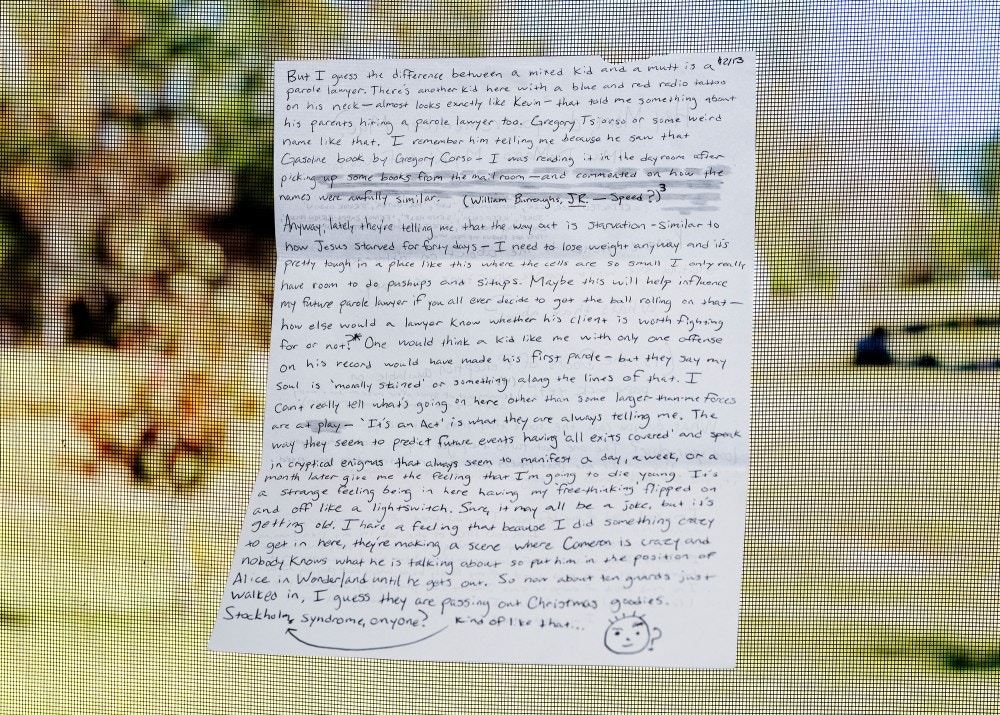 12/13
But I guess the difference between a mixed kid and a mutt is a
parole lawyer. There's another kid here with a blue and red radio tattoo
on his neck — almost looks exactly like Kevin — that told me something about
his parents hiring a parole lawyer too. Gregory Tsiorso or some weird
name like that. I remember him telling me because he saw that
Gasoline book by Gregory Corso - I was reading it in the dayroom after
picking up some books from the mail room — and commented on how the
names were awfully similar. (William Burroughs, JR. — Speed?)3
Anyway, lately they're telling me that the way out is starvation - similar to
how Jesus starved for forty days - I need to lose weight anyway and it's
pretty tough in a place like this where the cells are so small I only really
have room to do pushups and situps. Maybe this will help influence
my future parole lawyer if you all ever decide to get the ball rolling on that —
how else would a lawyer know whether his client is worth fighting
for or not?* One would think a kid like me with only one offense
on his record would have made his first parole - but they say my
soul is 'morally stained' or something along the lines of that. I
can't really tell what's going on here other than some larger-than-me forces
are at play — 'It's an Act' is what they are always telling me. The
way they seem to predict future events having 'all exits covered' and speak
in cryptical enigmas that always seem to manifest a day, a week, or a
month later give me the feeling that I'm going to die young. It's
a strange feeling being in here having my 'free-thinking' flipped on
and off like a lightswitch. Sure, it may all be a joke, but it's
getting old. I have a feeling that because I did something crazy
to get in here, they're making a scene where Cameron is crazy and
nobody knows what he is talking about so put him in the position of
Alice in Wonderland until he gets out. So now about ten guards just
walked in, I guess they are passing out Christmas goodies.
Stockholm syndrome, anyone? Kind of like that... ?